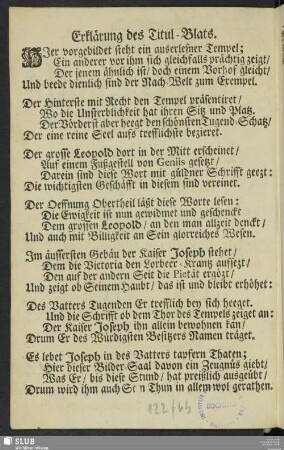 Erklärung des Titul-Blats.
HJer vorgebildet steht ein auserlesner Tempel;
Ein anderer vor ihm sich gleichfalls prächtig zeigt/
Der jenem ähnlich ist/ doch einem Vorhof gleicht/
Und beede dienlich sind der Nach Welt zum Exempel.
Der Hinterste mit Recht den Tempel präsentiret/
Wo die Unsterblichkeit hat ihren Sitz und Platz.
Der Vörderst aber heegt den schönsten Tugend-Schatz/
Der eine reine Seel aufs trefflichste bezieret.
Der grosse Leopold dort in der Mitt erscheinet/
Auf einem Fußgestell von Geniis gesetzt/
Darein sind diese Wort mit güldner Schrifft geezt:
Die wichtigsten Geschäfft in diesem sind vereinet.
Der Oeffnung Obertheil läßt diese Worte lesen:
Die Ewigkeit ist nun gewidmet und geschenckt
Dem grossen Leopold/ an den man allzeit denckt/
Und auch mit Billigkeit an Sein glorreiches Wesen.
Im äussersten Gebäu der Kaiser Joseph stehet/
Dem die Victoria den Lorbeer-Kranz aufsezt/
Den auf der andern Seit die Pietät ergözt/
Und zeigt ob Seinem Haubt/ das ist und bleibt erhöhet:
Des Vatters Tugenden Er trefflich bey sich heeget.
Und die Schrifft ob dem Thor des Tempels zeiget an:
Der Kaiser Joseph ihn allein bewohnen kan/
Drum Er des Würdigsten Besitzers Namen träget.
Es lebet Joseph in des Vatters tapfern Thaten;
Hier dieser Bilder-Saal davon ein Zeugnus giebt/
Was Er/ bis diese Stund/ hat preißlich ausgeübt/
Drum wird ihm auch Sein Thun in allem wol gerathen.
122/65
SLUB
Wir führen Wissen.